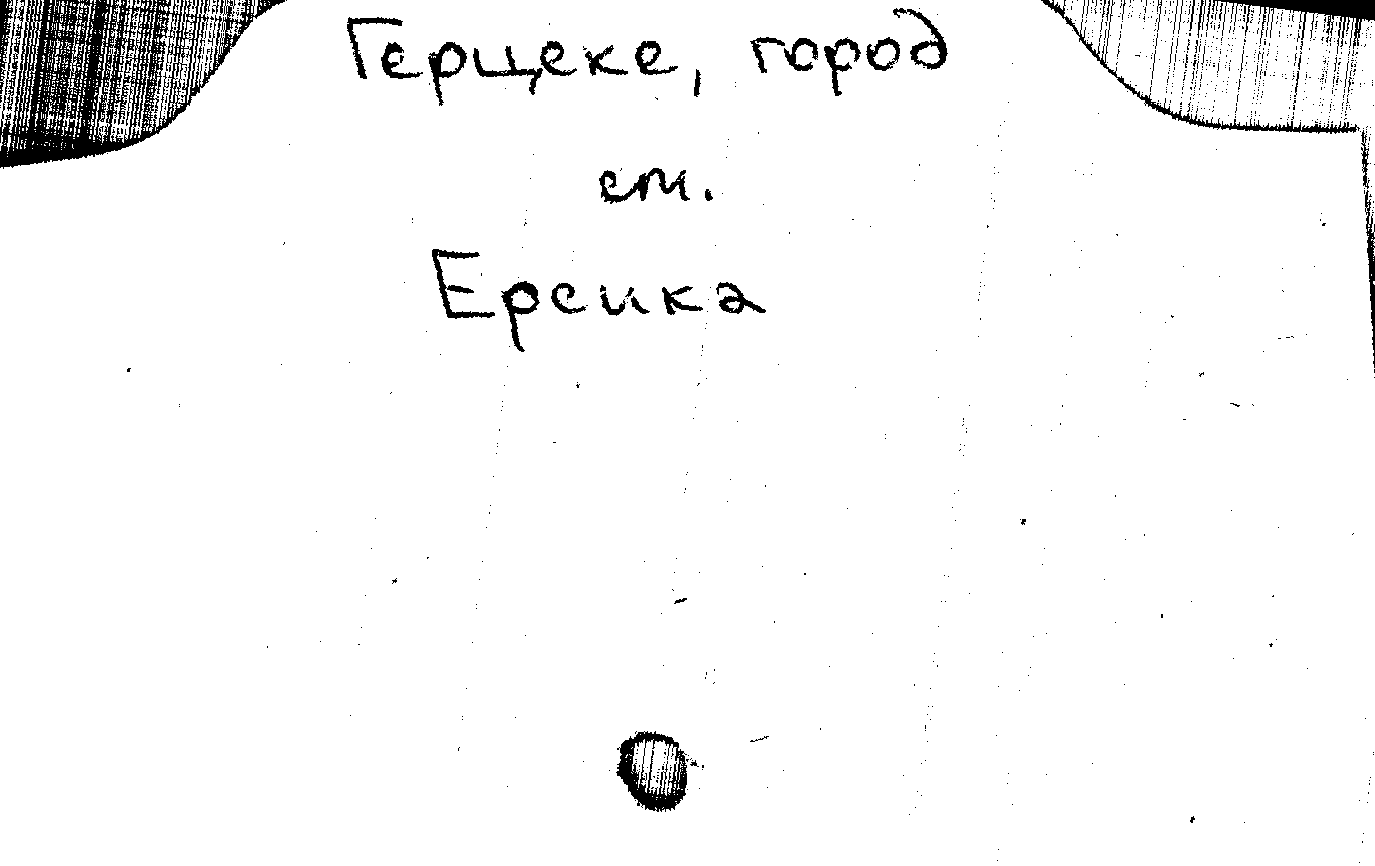 Герцеке, город
см.
Ерсика